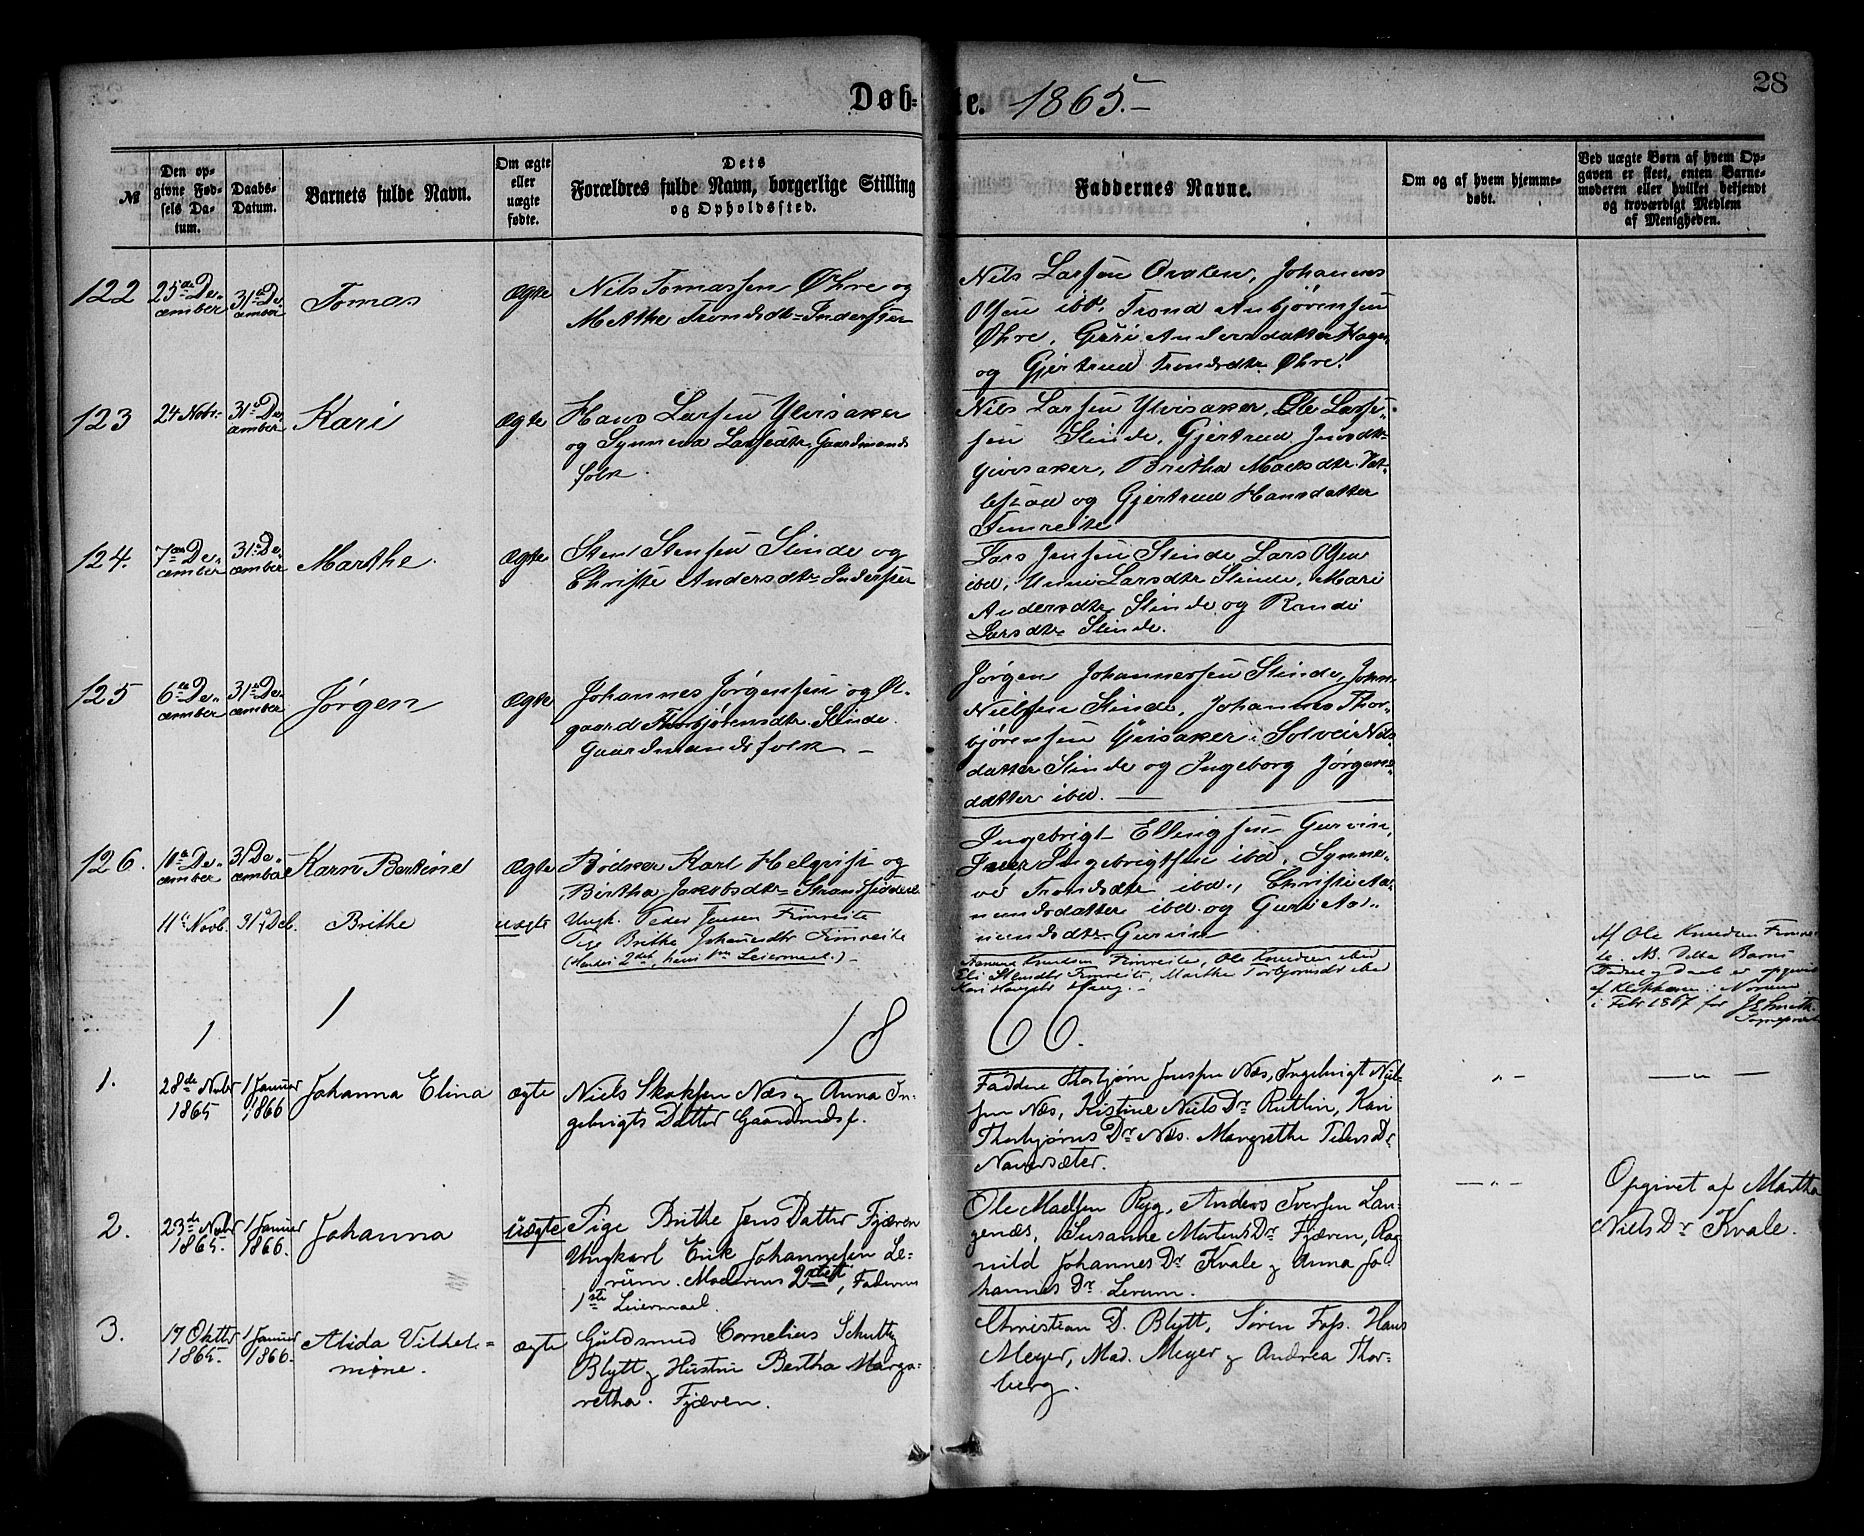 28
Døb- te. 1865.-
№
Den op-
givne Fød-
sels Da-
tum.
Daabs-
Datum.
Barnets fulde Navn.
Om ægte
eller
uægte
fødte.
Dets
Forældres fulde Navn, borgerlige Stilling
og Opholdssted.
Faddernes Navne.
Om og af hvem hjemme-
døbt.
Ved uægte Børn af hvem Op-
gaven er skeet, enten Barne-
moderen eller hvilket bekjendt
og troværdigt Medlem
af Menigheden.
122
25de De-
cember
31te De-
cember
Tomas
Ægte
Nils Tomassen Øhre og
Methe Trondsdtr Inderster
Nils Larsen Johannes
Olsen ibd. Trond Anbjørensen
Øhre, Guri Andersdatter Hagen
og Gjertrud Trondsdtr Øhre.
123
24 Nobr.
31te De-
cember
Kari
Ægte
Hans Larsen Ylvisaker
og Synneva Larsdtr Gaardmands
folk.
Nils Larsen Ylvisaker, Ole Lars-
sen Slinde, Gjertrud Jensdtr
Ylvisaker, Britha Madsdtr Vat-
lestad og Gjertrud Hansdatter
Fimreite
124.
7de De-
cember
31te De-
cember
Marthe
Ægte
Sten Stensen Slinde og
Christe Andersdtr Inderster
Lars Jensen Slinde, Lars Olsen
ibd, Unni Larsdtr Slinde, Mari
Andersdtr Slinde og Randi
Larsdtr Slinde.
125
6te De-
cember
31te De-
cember
Jørgen
Ægte
Johannes Jørgensen og Øl-
gaard Thorbjørensdtr Slinde.
Gaardmandsfolk -
Jørgen Johannessen Slinde, John
Nielsen Slinde, Johannes Thor-
bjørensen Ylvisaker, Solveir Nils-
datter Slinde og Ingeborg Jørgens-
datter ibd. -
126.
10de De-
cember
31 De-
cember
Karn Bertine
Ægte
Bødker Karl Helqvist og
Birtha Jakobsdtr Strandsiddere
Ingebrigt Ellingsen Gurvin,
Iver Ingebrigtsen ibd, Synne-
ve Trondsdtr ibd., Christi Aa-
mundsdatter ibd. og Guri Aa-
mundsdtr Gurvin
11te Novb.
31te Deb.
Brithe
uægte
Ungk. Peder Jensen Fimreite
Pige Brithe Johannesdtr Fimreite
(Hendes 2det, hans 1ste Leiermaal.) -
Aamund Knudsen Fimreite, Ole Knudsen ibid
Eli Fimreite, Marthe Torbjørnsdtr ibid
Kari Hansdtr Haug. -
Af Ole Knudsen Fimrei-
te. NB. Dette Barns
Fødsel og Daab er opgivet
af Klokkeren i Norum
i Febr 1867 for JESmith
Sogneprest
1
1
18
66.
1.
28de Nvbr
1865
1 Januar
1866
Johanna Elina
ægte
Niels Skaksen Næs og Anna In-
gebrigts Datter Gaardmdsf.
Faddere Thorbjørn Jensen Næs, Ingebrigt Niel-
sen Næs, Kistine Niels Dr Rutlin, Kari
Thorbjørns Dr Næs. Margrethe Peders Dr
Navarsæter.
- " -
- " -
2.
23de Nvbr
1865.
1 Januar
1866.
Johanna
uægte
Pige Brithe Jens Datter Fjæren
Ungkarl Erik Johannesen Le-
rum. Moderens 2det, Faderens
1ste Leiermaal.
Ole Madsen Ryg, Anders Iversen Lan-
genæs, Susanne Mortens Dr Fjæren, Rag
nild Johannes Dr Kvale og Anna Jo
hannes Dr Lerum.
- " -
Opgivet af Martha
Niels Dr Kvale.
3.
17 Oktbr
1865.
1 Januar
1866.
Alida Vilhel-
mine.
ægte
Guldsmed Cornelius Schultz
Blytt og Hustru Bertha Marga-
retha. Fjæren.
Christian D. Blytt, Søren Foss. Hans
Meyer, Mad. Meyer og Andrea Thor-
berg.